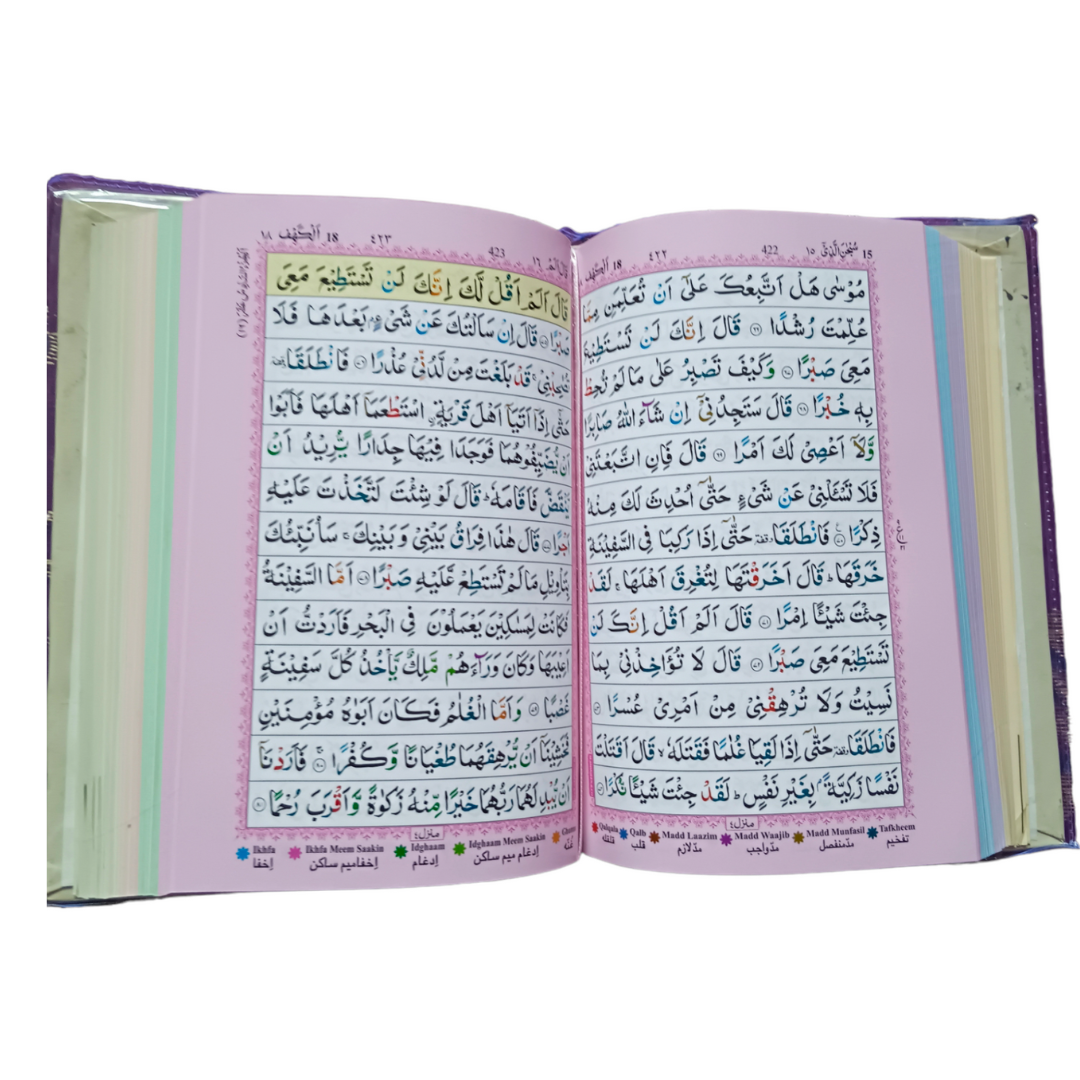 15 سُبْحٰنَ الَّذِیْۤ ١٥ 422 ٤٢٢ 18 اَلْكَهْف
مُوْسٰی هَلْ اَتَّبِعُكَ عَلٰۤی اَنْ تُعَلِّمَنِ مِمَّا
عُلِّمْتَ رُشْدًا ٦٦ قَالَ اِنَّكَ لَنْ تَسْتَطِیْعَ
مَعِیَ صَبْرًا ٦٧ وَكَیْفَ تَصْبِرُ عَلٰی مَا لَمْ تُحِطْ
بِهٖ خُبْرًا ٦٨ قَالَ سَتَجِدُنِیْۤ اِنْ شَآءَ اللّٰهُ صَابِرًا
وَّلَاۤ اَعْصِیْ لَكَ اَمْرًا ٦٩ قَالَ فَاِنِ اتَّبَعْتَنِیْ
فَلَا تَسْـَٔلْنِیْ عَنْ شَیْءٍ حَتّٰۤی اُحْدِثَ لَكَ مِنْهُ
ذِكْرًا ٧٠ فَانْطَلَقَا وقفة حَتّٰۤی اِذَا رَكِبَا فِی السَّفِیْنَةِ
خَرَقَهَا ؕ قَالَ اَخَرَقْتَهَا لِتُغْرِقَ اَهْلَهَا ۚ لَقَدْ
جِئْتَ شَیْـًٔا اِمْرًا ٧١ قَالَ اَلَمْ اَقُلْ اِنَّكَ لَنْ
تَسْتَطِیْعَ مَعِیَ صَبْرًا ٧٢ قَالَ لَا تُؤَاخِذْنِیْ بِمَا
نَسِیْتُ وَلَا تُرْهِقْنِیْ مِنْ اَمْرِیْ عُسْرًا ٧٣
فَانْطَلَقَا وقفة حَتّٰۤی اِذَا لَقِیَا غُلٰمًا فَقَتَلَهٗ ۙ قَالَ اَقَتَلْتَ
نَفْسًا زَكِیَّةًۢ بِغَیْرِ نَفْسٍ ؕ لَقَدْ جِئْتَ شَیْـًٔا نُّكْرًا ٧٤
منزل ٤
Qalqala Qalb Madd Laazim Madd Waajib Madd Munfasil Tafkheem
قلقله قلب مدّ لازم مدّ واجب مدّ منفصل تفخیم
423 ٤٢٣ 18 اَلْكَهْف ١٨
قَالَ اَلَمْ اَقُلْ لَّكَ اِنَّكَ لَنْ تَسْتَطِیْعَ مَعِیَ
صَبْرًا ٧٥ قَالَ اِنْ سَاَلْتُكَ عَنْ شَیْءٍۭ بَعْدَهَا فَلَا
تُصٰحِبْنِیْ ۚ قَدْ بَلَغْتَ مِنْ لَّدُنِّیْ عُذْرًا ٧٦ فَانْطَلَقَا وقفة
حَتّٰۤی اِذَاۤ اَتَیَاۤ اَهْلَ قَرْیَةِ ِ۟اسْتَطْعَمَاۤ اَهْلَهَا فَاَبَوْا
اَنْ یُّضَیِّفُوْهُمَا فَوَجَدَا فِیْهَا جِدَارًا یُّرِیْدُ اَنْ
یَّنْقَضَّ فَاَقَامَهٗ ؕ قَالَ لَوْ شِئْتَ لَتَّخَذْتَ عَلَیْهِ
اَجْرًا ٧٧ قَالَ هٰذَا فِرَاقُ بَیْنِیْ وَبَیْنِكَ ۚ سَاُنَبِّئُكَ
بِتَاْوِیْلِ مَا لَمْ تَسْتَطِعْ عَّلَیْهِ صَبْرًا ٧٨ اَمَّا السَّفِیْنَةُ
فَكَانَتْ لِمَسٰكِیْنَ یَعْمَلُوْنَ فِی الْبَحْرِ فَاَرَدْتُّ اَنْ
اَعِیْبَهَا وَكَانَ وَرَآءَهُمْ مَّلِكٌ یَّاْخُذُ كُلَّ سَفِیْنَةٍ
غَصْبًا ٧٩ وَاَمَّا الْغُلٰمُ فَكَانَ اَبَوٰهُ مُؤْمِنَیْنِ
فَخَشِیْنَاۤ اَنْ یُّرْهِقَهُمَا طُغْیَانًا وَّكُفْرًا ۚ ٨٠ فَاَرَدْنَاۤ
اَنْ یُّبْدِلَهُمَا رَبُّهُمَا خَیْرًا مِّنْهُ زَكٰوةً وَّاَقْرَبَ رُحْمًا ٨١
منزل ٤
Ikhfa Ikhfa Meem Saakin Idghaam Idghaam Meem Saakin Ghunna
اِخفا اِخفا میم ساكن اِدغام اِدغام میم ساكن غنّه